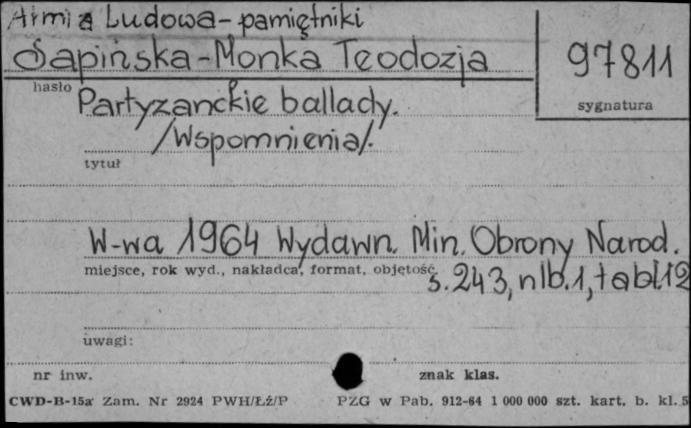 Armia Ludowa - pamiętniki
Sapińska-Monka Teodozja
97811
hasło
sygnatura
Partyzanckie ballady.
/Wspomnienia/.
tytuł
W-wa 1964 Wydawn. Min. Obrony Narod.
miejsce, rok wyd., nakładca, format, objętość
s. 243, nlb. 1, tabl. 12
uwagi:
nr inw.
znak klas.
CWD-B-15a Zam. Nr 2924 PWH/Łź/P
PZG w Pab. 912-64 1 000 000 szt. kart. b. kl. 5